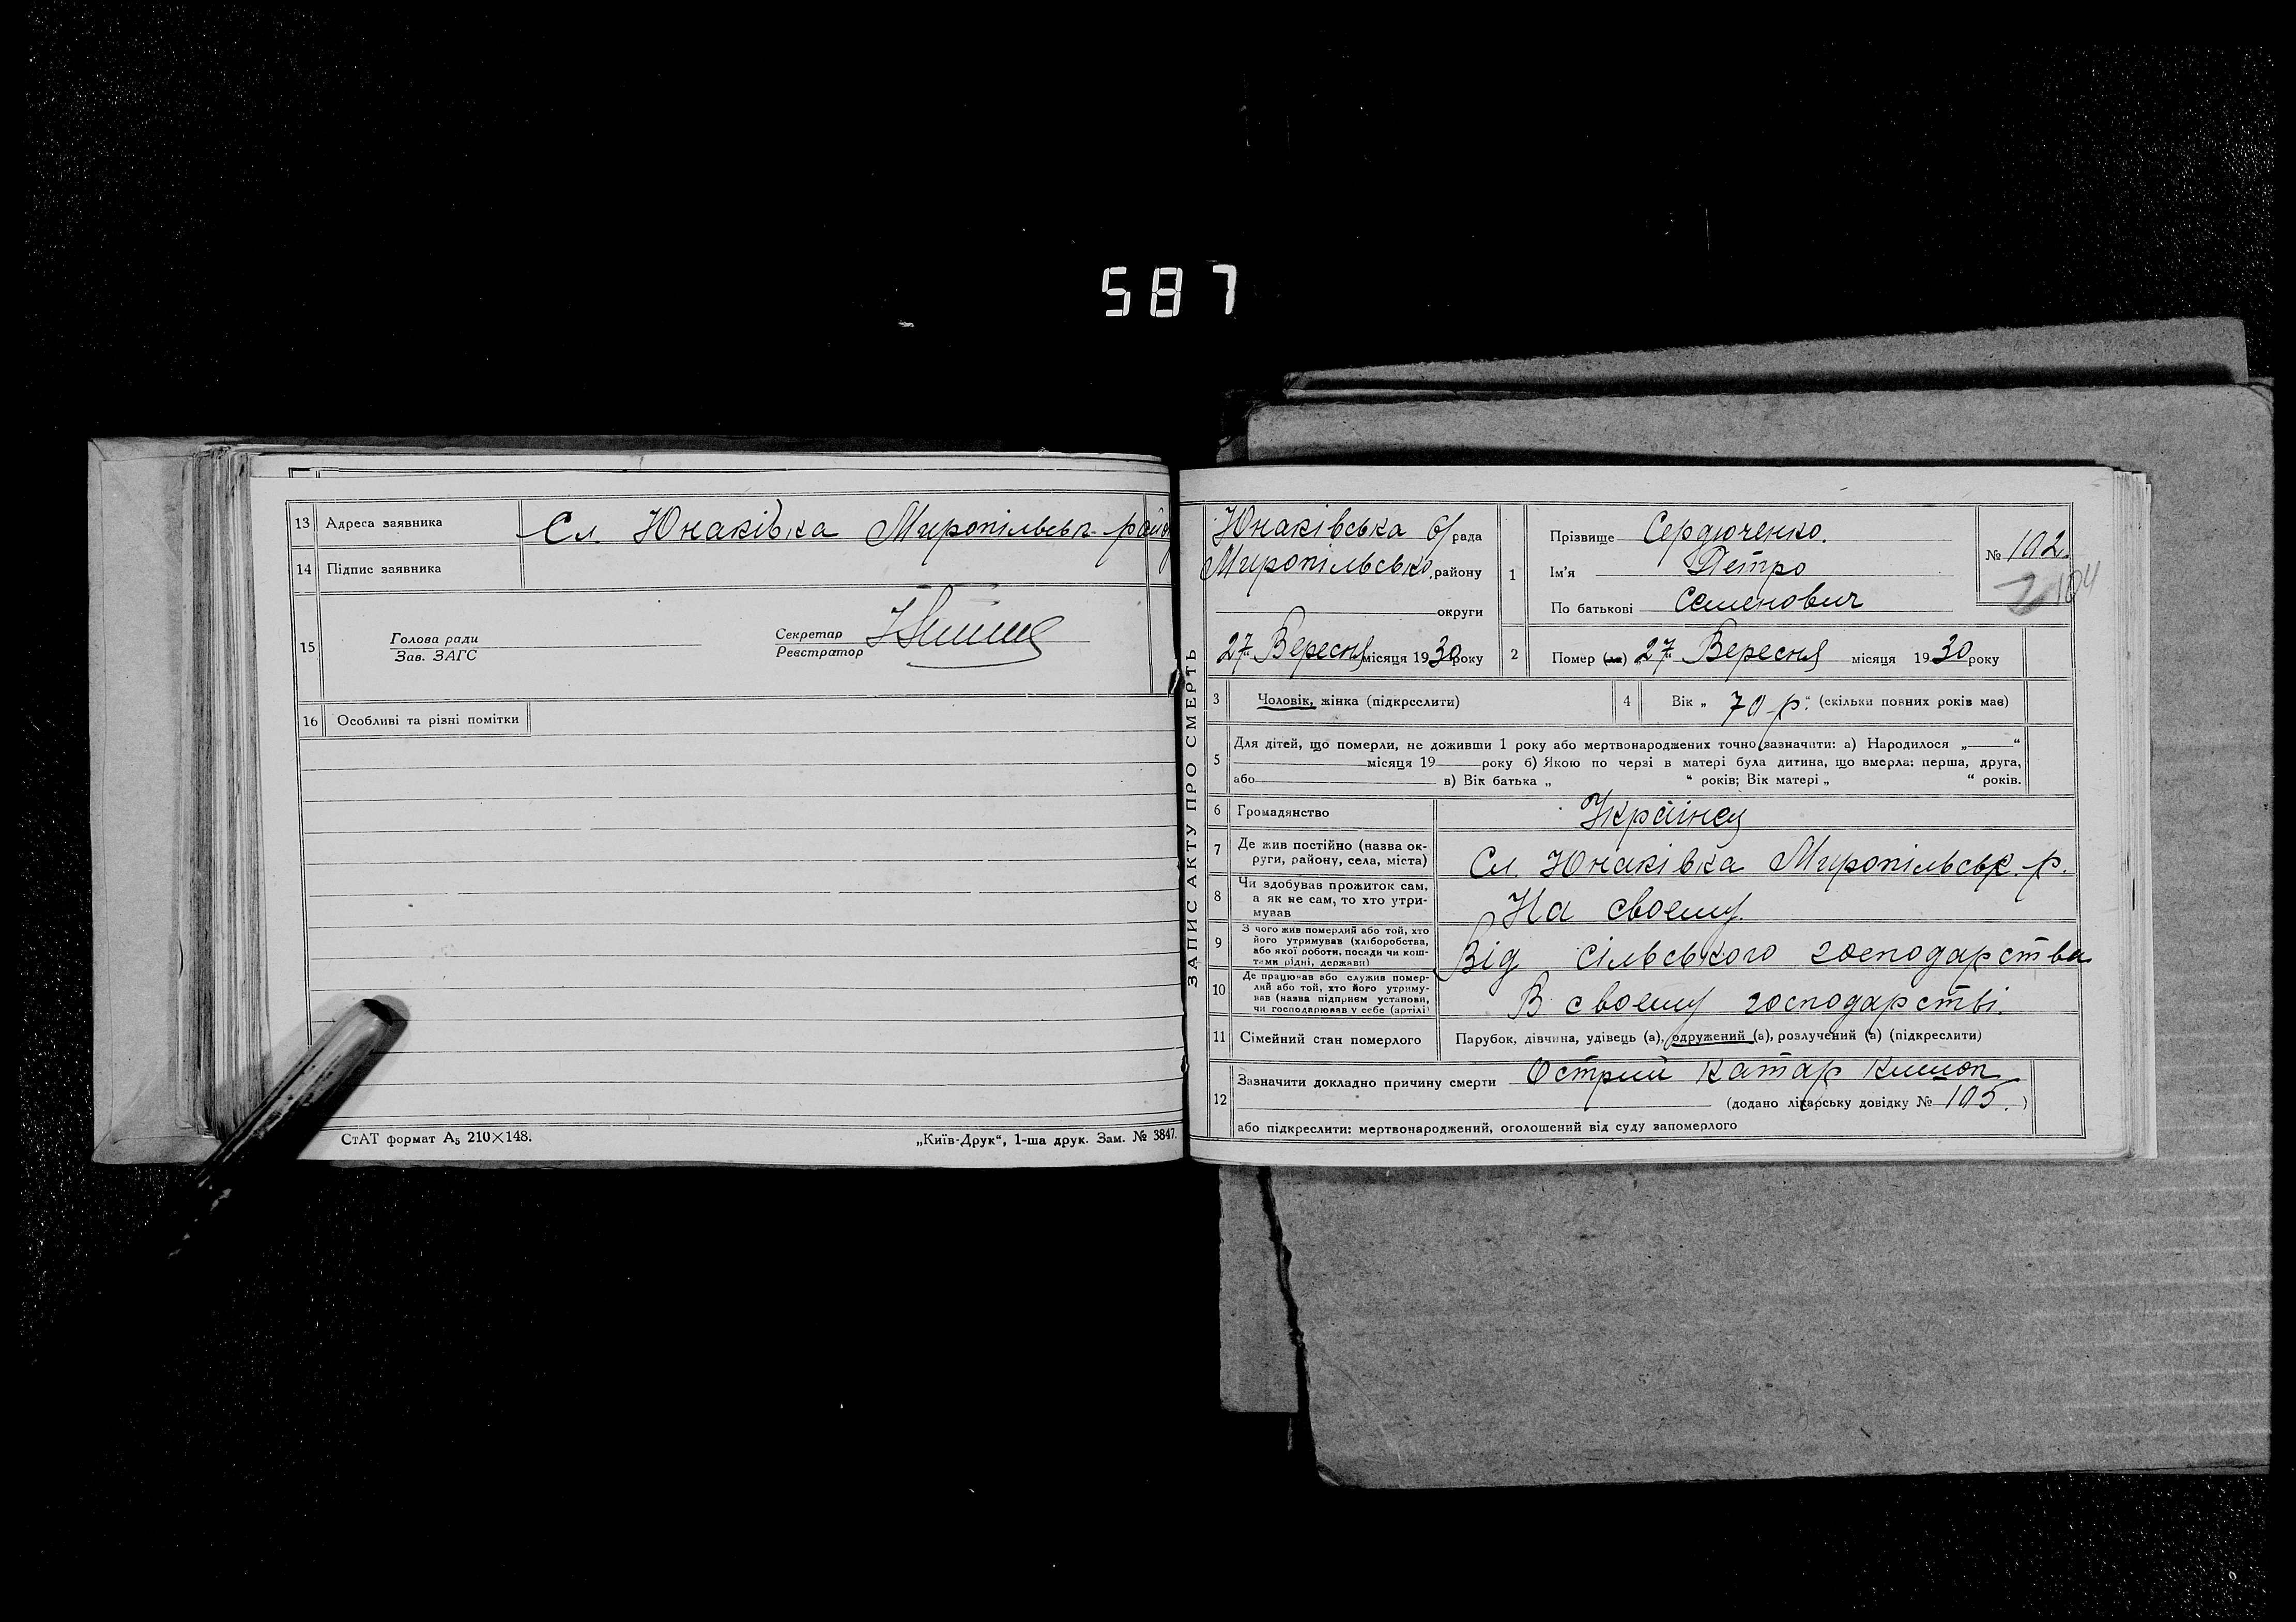 587
13 Адреса заявника Сл. Юнаківка Миропільськ. район
14 Підпис заявника
15 Голова ради
Зав. ЗАГС
Секретар
Реєстратор
16 Особливі та різні помітки
СтАТ формат А₅ 210×148.
„Київ-Друк“, 1-ша друк. Зам. № 3847.
ЗАПИС АКТУ ПРО СМЕРТЬ
Юнаківська с/рада
Миропільсько району
округи
27 Вересня місяця 1930 року
1 Прізвище Сердюченко.
Ім'я Петро
По батькові Семенович
№ 102.
104
2 Помер (ла) 27 Вересня місяця 1930 року
3 Чоловік, жінка (підкреслити)
4 Вік „ 70 р. “ (скільки повних років має)
5 Для дітей, що померли, не доживши 1 року або мертвонароджених точно зазначити: а) Народилося „ “
місяця 19 року б) Якою по черзі в матері була дитина, що вмерла: перша, друга,
або в) Вік батька „ “ років; Вік матері „ “ років.
6 Громадянство Українец
7 Де жив постійно (назва ок-
руги, району, села, міста) Сл. Юнаківка Миропільськ. р.
8 Чи здобував прожиток сам,
а як не сам, то хто утри-
мував На своему.
9 З чого жив померлий або той, хто
його утримував (хліборобства,
або якої роботи, посади чи кош-
тами рідні, держави) Від сільського господарства
10 Де працював або служив помер-
лий або той, хто його утриму-
вав (назва підприєм установи,
чи господарював у себе (артілі) В своему господарстві.
11 Сімейний стан померлого Парубок, дівчина, удівець (а), одружений (а), розлучений (а) (підкреслити)
12 Зазначити докладно причину смерти Острий катар кишок
(додано лікарську довідку № 105.)
або підкреслити: мертвонароджений, оголошений від суду запомерлого